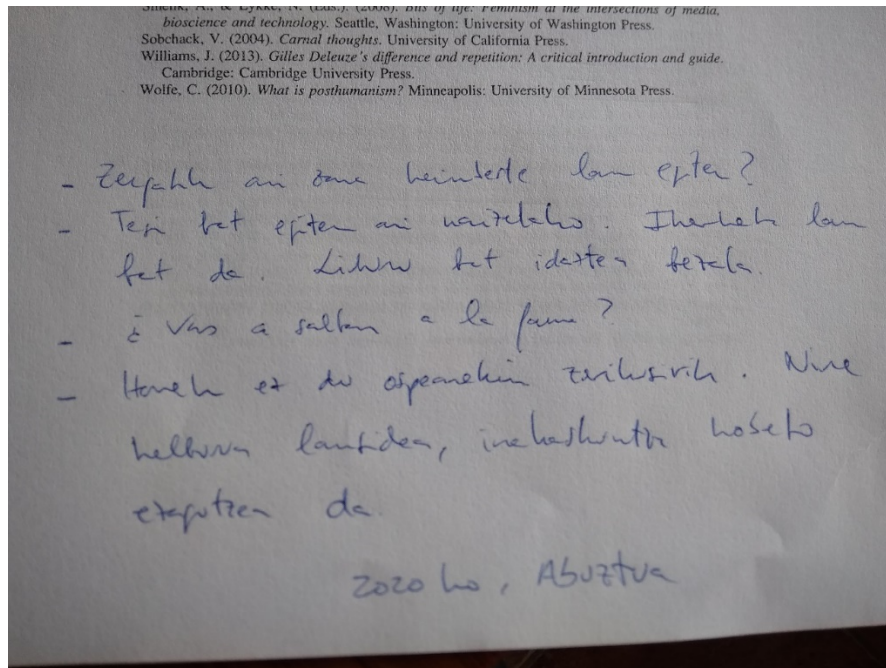 Smelik, A., & Lykke, N. (Eds.). (2008). Bits of life: Feminism at the intersections of media,
bioscience and technology. Seattle, Washington: University of Washington Press.
Sobchack, V. (2004). Carnal thoughts. University of California Press.
Williams, J. (2013). Gilles Deleuze's difference and repetition: A critical introduction and guide.
Cambridge: Cambridge University Press.
Wolfe, C. (2010). What is posthumanism? Minneapolis: University of Minnesota Press.
- Zergatik ari zara hainbeste lan egiten?
- Tesi bat egiten ari naizelako. Ikerketa lan
bat da. Liburu bat idaztea bezala.
- ¿Vas a saltar a la fama?
- Honek ez du ospearekin zerikusirik. Nire
helburua lanbidea, irakaskuntza hobeto
ezagutzea da.
2020 ko, Abuztua